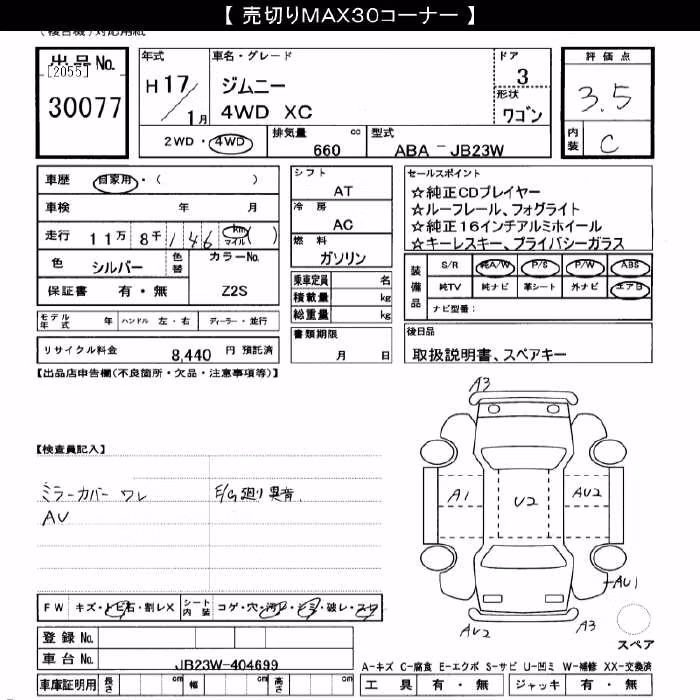 【 売切りMAX30コーナー 】
(複合機)対応用紙
出品No.
[2055]
30077
年式
H 17/1月
車名・グレード
ジムニー
4WD XC
ドア
3
形状
ワゴン
評価点
3.5
内装
C
2WD・4WD
排気量 cc
660
型式
ABA-JB23W
車歴 自家用・( )
車検 年 月
走行 11万 8千 146 km マイル ( )
色 シルバー 色替 カラーNo.
保証書 有・無 Z2S
シフト
AT
冷房
AC
燃料
ガソリン
乗車定員 名
積載量 kg
総重量 kg
セールスポイント
☆純正CDプレイヤー
☆ルーフレール、フォグライト
☆純正16インチアルミホイール
☆キーレスキー、プライバシーガラス
装備品
S/R 純A/W P/S P/W ABS
純TV 純ナビ 革シート 外ナビ エアB
ナビ型番:
モデル年式 年 ハンドル 左・右 ディーラー・並行
書類期限
月 日
後日品
取扱説明書、スペアキー
リサイクル料金 8,440 円 預託済
【出品店申告欄(不良箇所・欠品・注意事項等)】
【検査員記入】
ミラーカバー ワレ
AU
E/G廻り異音
A3
A1
U2
AU2
AU1
AU2
A3
スペア
FW キズ・トビ石・割レX
シート内装 コゲ・穴・汚レ・シミ・破レ・スレ
登録No.
車台No. JB23W-404699
車庫証明用 長さ cm 幅 cm 高さ cm
A-キズ C-腐食 E-エクボ S-サビ U-凹ミ W-補修 XX-交換済
工具 有・無 ジャッキ 有・無